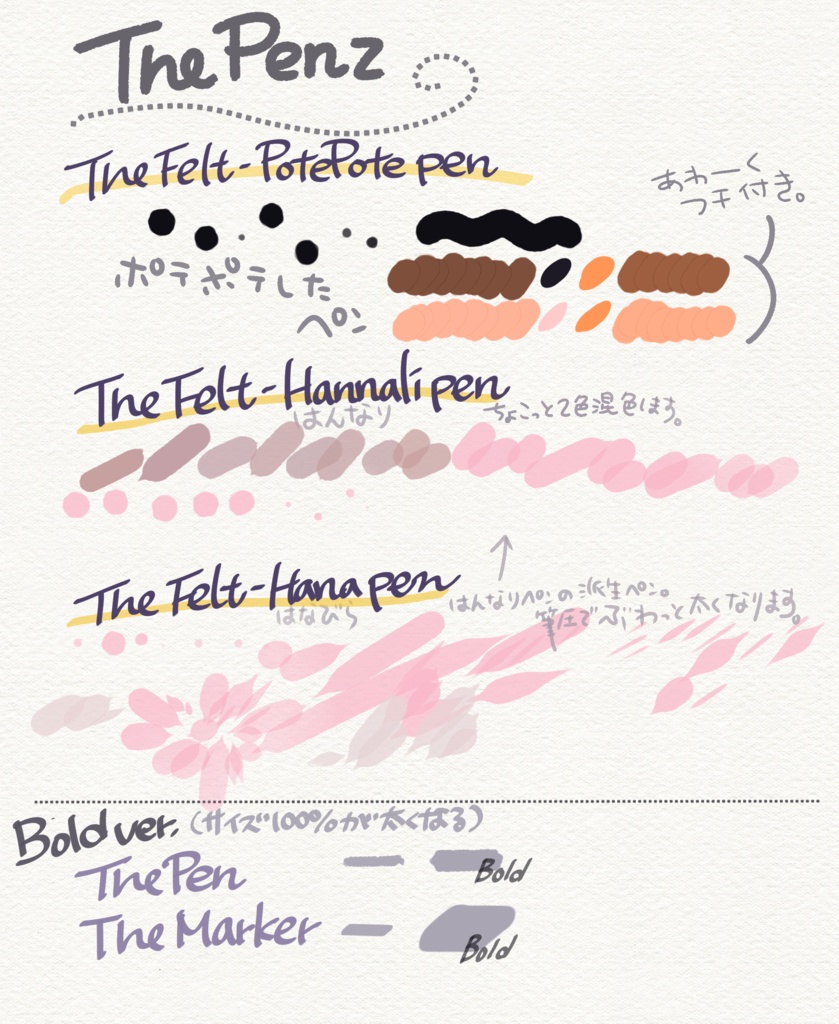 The Penz
The Felt-PotePote pen
あわーく
フチ付き。
ポテポテした
ペン
The Felt-Hannali pen
はんなり
ちょこっと2色混色します。
The Felt-Hana pen
はなびら
はんなりペンの派生ペン。
筆圧でぶわっと太くなります。
Bold ver. (サイズ100%が太くなる)
The Pen
Bold
The Marker
Bold